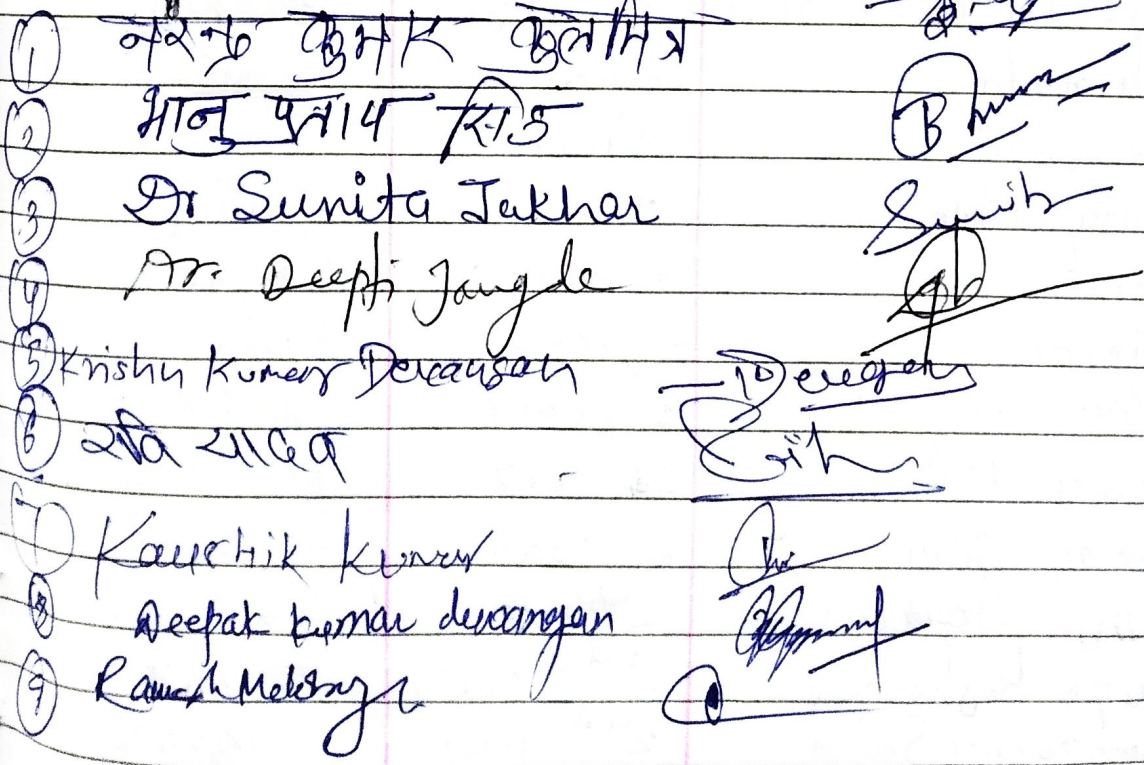 1 नरेन्द्र कुमार कुलमित्र
2 भानु प्रताप सिंह
3 Dr Sunita Jakhar Sunita
4 Ar. Deepti Jangde
5 Krishn Kumar Dewangan Dewangan
6 रवि यादव
7 Kaushik kumar
8 Deepak kumar dewangan
9 Ramesh